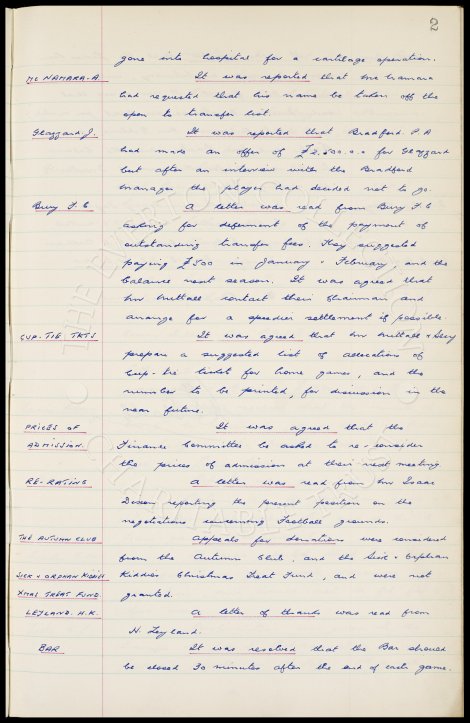 2
gone into hospital for a cartilage operation.
Mc NAMARA - A. It was reported that McNamara
had requested that his name be taken off the
open to transfer list.
Glazzard J. It was reported that Bradford P.A
had made an offer of £2,500.0.0 for Glazzard
but after an interview with the Bradford
manager the player had decided not to go.
Bury F.C A letter was read from Bury F.C
asking for deferment of the payment of
outstanding transfer fees. They suggested
paying £500 in January & February, and the
balance next season. It was agreed that
Mr Nuttall contact their Chairman and
arrange for a speedier settlement if possible.
CUP-TIE TKTS It was agreed that Mr Nuttall & Secy
prepare a suggested list of allocations of
Cup-tie tickets for home games, and the
number to be printed, for discussion in the
near future.
PRICES OF It was agreed that the
ADMISSION. Finance Committee be asked to re-consider
the prices of admission at their next meeting.
RE-RATING A letter was read from Mr Isaac
Dixon reporting the present position on the
negotiations concerning Football grounds.
THE AUTUMN CLUB Appeals for donations were considered
from the Autumn Club, and the Sick & Orphan
SICK & ORPHAN KIDDIES Kiddies Christmas Treat Fund, and were not
XMAS TREAT FUND. granted.
LEYLAND. H.K. A letter of thanks was read from
H. Leyland.
BAR It was resolved that the Bar should
be closed 30 minutes after the end of each game.